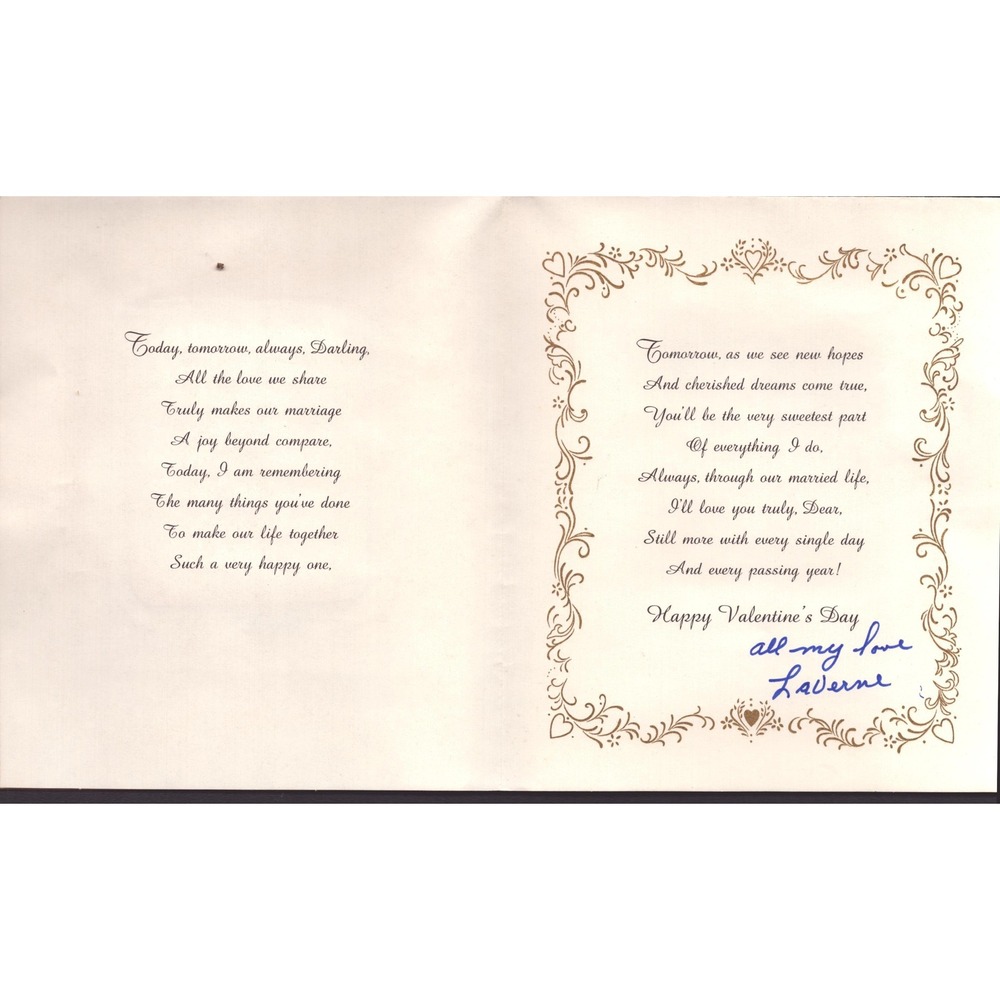 Today, tomorrow, always, Darling,
All the love we share
Truly makes our marriage
A joy beyond compare,
Today, I am remembering
The many things you've done
To make our life together
Such a very happy one,
Tomorrow, as we see new hopes
And cherished dreams come true,
You'll be the very sweetest part
Of everything I do,
Always, through our married life,
I'll love you truly, Dear,
Still more with every single day
And every passing year!
Happy Valentine's Day
all my love
LaVerne